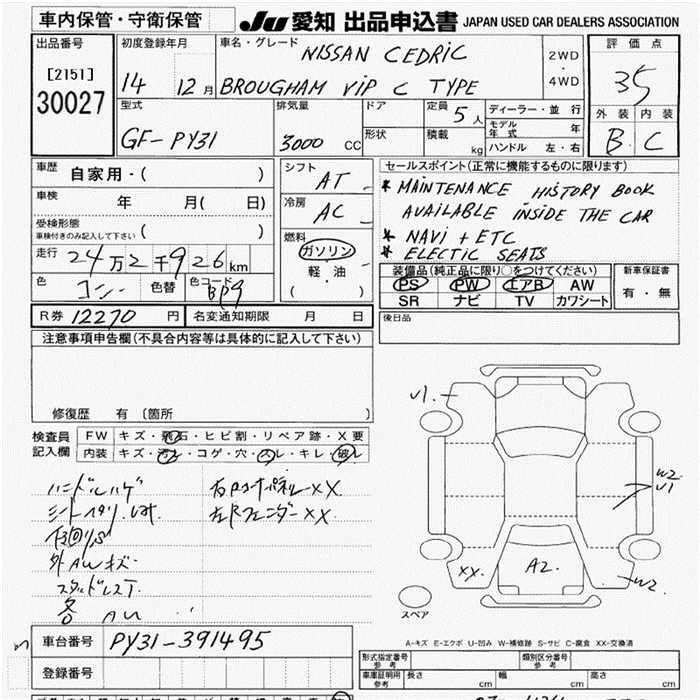 車内保管・守衛保管
JU 愛知 出品申込書 JAPAN USED CAR DEALERS ASSOCIATION
出品番号
[2151]
30027
初度登録年月
14 12 月
車名・グレード
NISSAN CEDRIC
BROUGHAM VIP C TYPE
2WD
・
4WD
評価点
35
外装 内装
B C
型式
GF-PY31
排気量
3000 CC
ドア
形状
定員
5 人
積載
kg
ディーラー・並行
モデル年式 年
ハンドル 左・右
車歴
自家用・( )
車検
年 月( 日)
受検形態
車検付きのみ記入して下さい ( )
走行 24万2千926km
色 色替 色コード
BP9
シフト
AT
冷房
AC
燃料
ガソリン
軽・油
( )
セールスポイント(正常に機能するものに限ります)
* MAINTENANCE HISTORY BOOK
AVAILABLE INSIDE THE CAR
* NAVI + ETC
* ELECTIC SEATS
装備品(純正品に限り○をつけてください)
PS PW エアB AW
SR ナビ TV カワシート
新車保証書
有・無
R券 12270 円
名変通知期限 月 日
後日品
注意事項申告欄(不具合内容等は具体的に記入して下さい)
修復歴 有 〔箇所 〕
検査員
記入欄
FW キズ・飛石・ヒビ割・リペア跡・X要
内装 キズ・汚レ・コゲ・穴・スレ・キレ・破レ
ハンドルハゲ
外AWキズ
スタッドレスT
各AW
右Rコーナーパネル-XX.
左Rフェンダー-XX.
U1.
W2
U1
XX.
A2.
W2
スペア
A-キズ E-エクボ U-凹み W-補修跡 S-サビ C-腐食 XX-交換済
車台番号 PY31-391495
登録番号
形式指定番号
参考
類別区分番号
参考
車庫証明用
参考
長さ cm
幅 cm
高さ cm